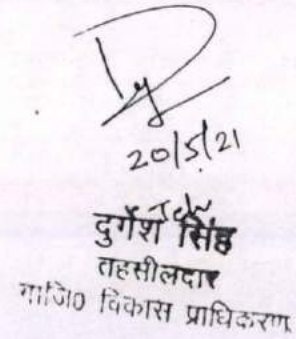 20/5/21
दुर्गेश सिंह
तहसीलदार
गाजि० विकास प्राधिकरण